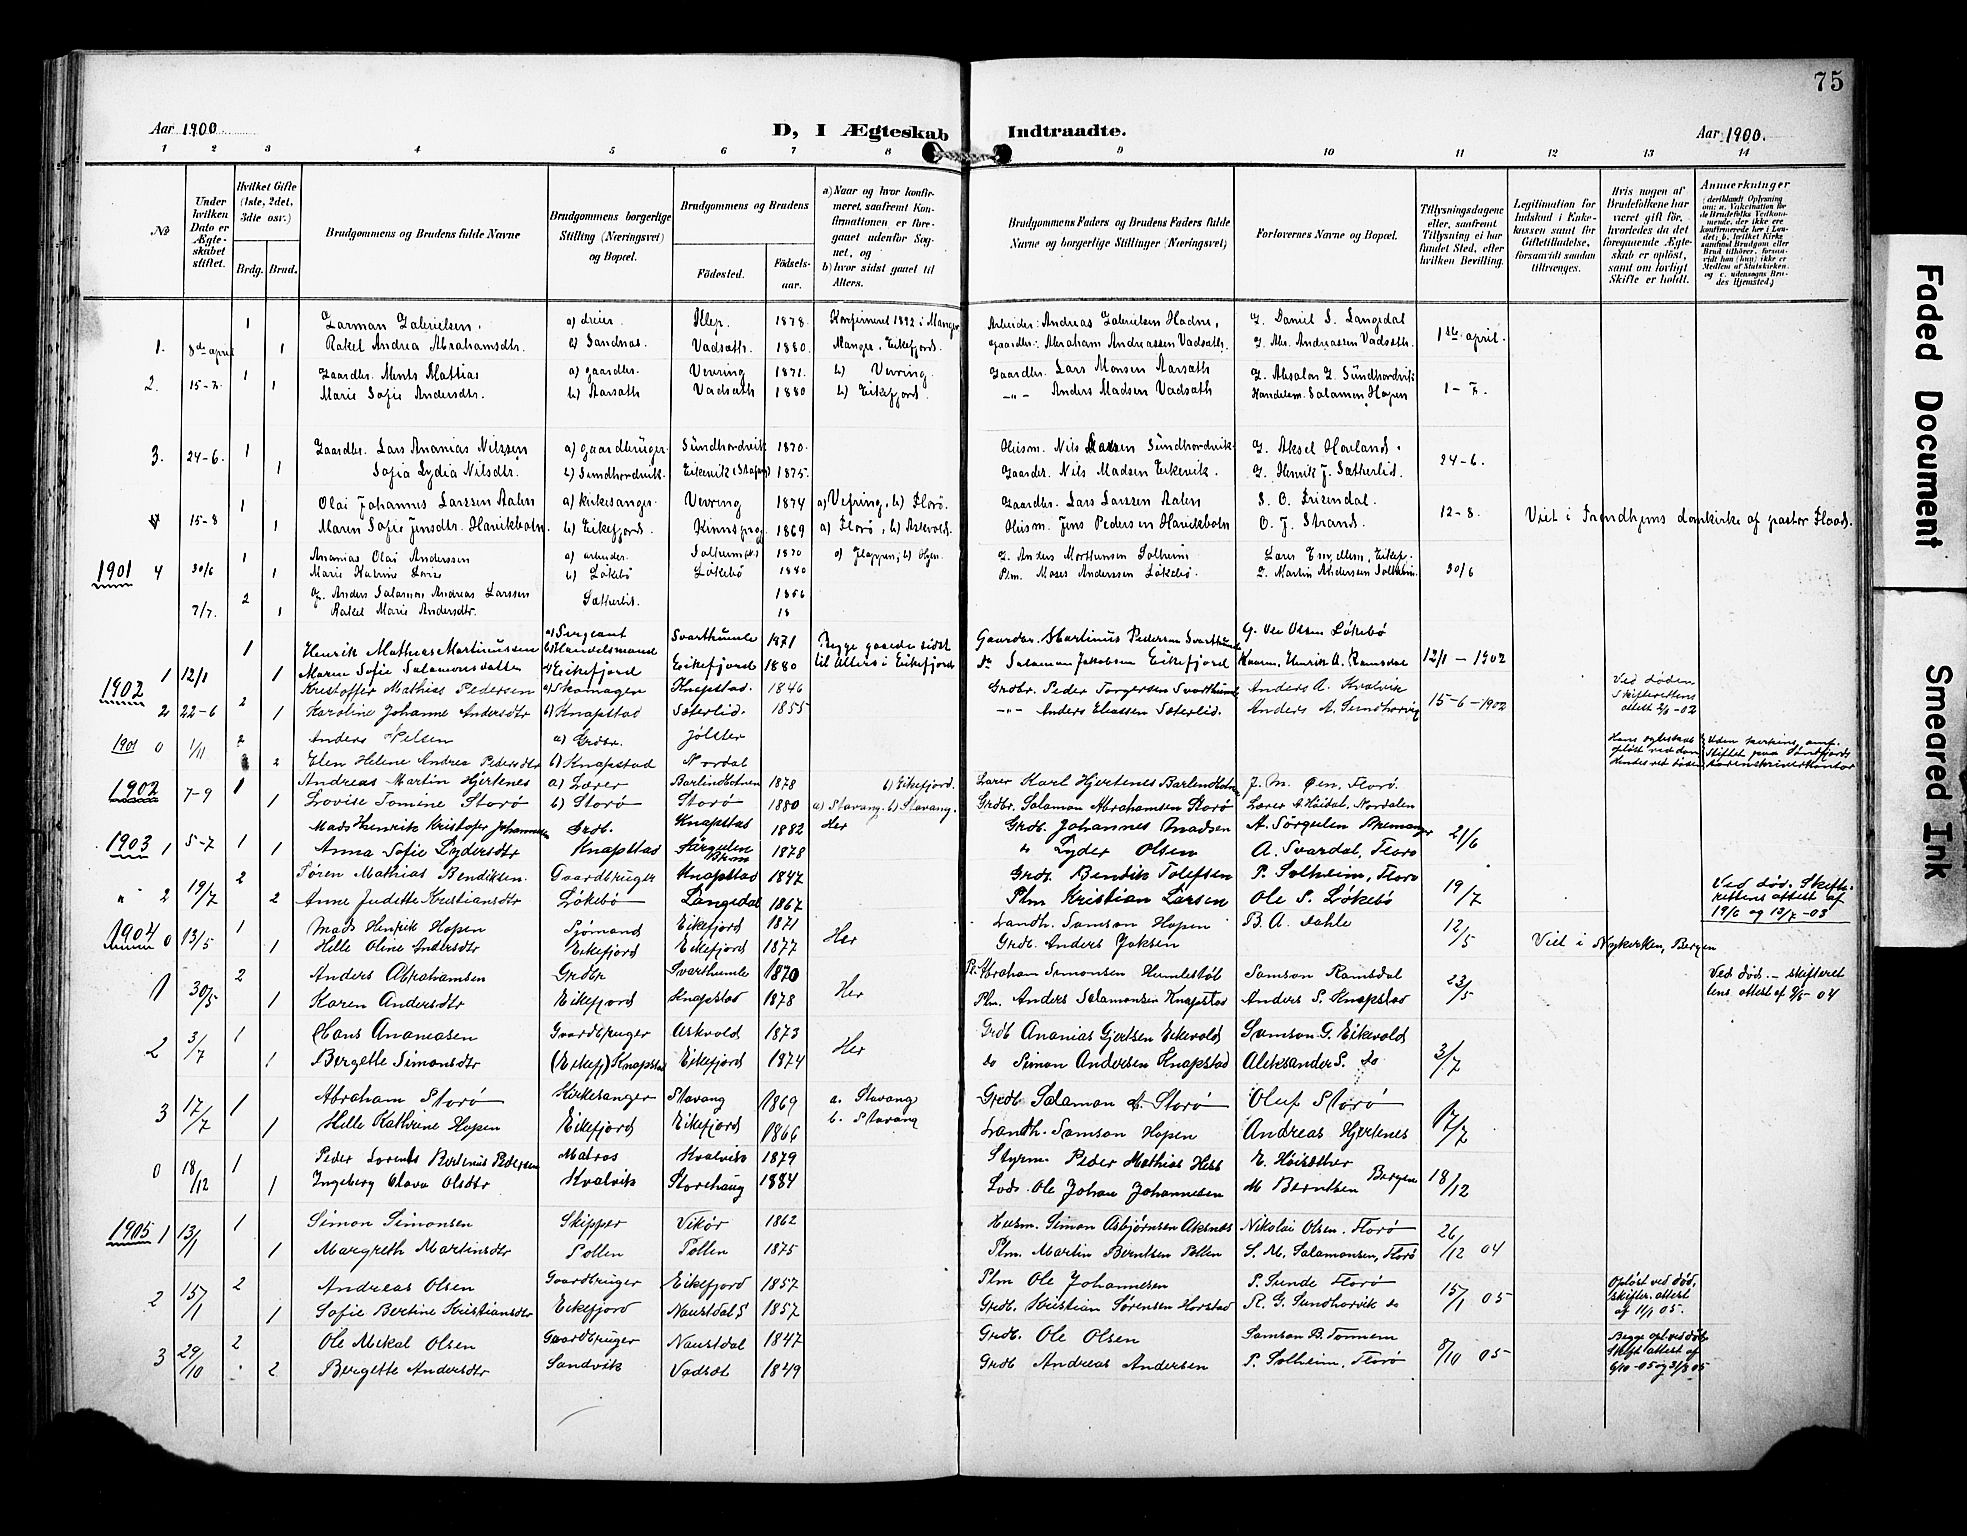 75
Aar 1900 D, I Ægteskab Indtraadte. Aar 1900.
1 2 3 4 5 6 7 8 9 10 11 12 13 14
No
Under hvilken Dato er Ægteskabet stiftet.
Hvilket Gifte (1ste, 2det, 3die osv.)
Brdg. Brud.
Brudgommens og Brudens fulde Navne
Brudgommens borgerlige Stilling (Næringsvei) og Bopæl.
Brudgommens og Brudens
Fødested. Fødselsaar.
a) Naar og hvor konfirmeret, saafremt Konfirmationen er foregaaet udenfor Sognet, og
b) hvor sidst gaaet til Alters.
Brudgommens Faders og Brudens Faders fulde Navne og borgerlige Stillinger (Næringsvei)
Forlovernes Navne og Bopæl.
Tillysningsdagene eller, saafremt Tillysning ei har fundet Sted, efter hvilken Bevilling.
Legitimation for Indskud i Enkekassen samt for Giftetilladelse, forsaavidt saadan tiltrænges.
Hvis nogen af Brudefolkene har været gift før, hvorledes da det foregaaende Ægteskab er opløst, samt om lovligt Skifte er holdt.
Anmerkninger
1 Zarman Gabrielsen. a) Dreier. Klep. 1878. Konfirmeret 1892 i Manger Arbeider: Andreas Gabrielsen Hadne, G. Daniel S. Langedal
1. 8de april 1 Rakel Andrea Abrahamsdtr. b) Sandnæs. Vadsøth. 1880. Manger. Eikefjord. Gaardbr: Abraham Andreassen Vadsøth. G. Abr. Andreassen Vadsøth. 1ste april.
1 Gaardbr. Ments Mattias a) gaardbr. Vevring 1871. b) Vevring. Gaardbr. Lars Monsen Aarsæth G. Absalon Z. Sündhordvik
2. 15-7. 1 Marie Sofie Andersdtr. b) Aarsæth Vadsæth 1880 b) Eikefjord. -"- Anders Madsen Vadsæth Handelsm. Salamon Hopen 1-7.
1 Gaardbr. Lars Ananias Nilssen a) gaardbruger Sündhordvik 1870. Husm. Nils Larssen Sündhordvik. G. Aksel Hovland.
3. 24-6. 1 Sofia Lydia Nilsdtr. b) Sundhordvik. Eikevik 1875. Gaardbr. Nils Madsen Eikevik. G. Henrik J. Sætherlid. 24-6.
1 Olai Johannes Larssen Aalen a) kirkesanger. Vevring 1874 a) Vefring, b) Florø. Gaardbr. Lars Larssen Aalen S. O. Frizendal.
15-8 1 Maren Sofie Jensdtr. Havikbotn. b) Eikefjord. Kinns prgj 1869 a) Florø, b) Askvold. Husm. Jens Pedersen Havikbotn O. J. Strand. 12-8. Viet i Trondhjems domkirke af pastor Flood.
1 Ananias Olai Anderssen a) arbeider. Solheim 1870 b) Oljen. G. Anders Mortensen Solheim Lærer Endlem, Eikef.
1901 4 30/6 1 Marie Katrine b) Løkebø Løkebø 1880 Plm. Moses Anderssen Løkebø. G. Martin Andersen Solheim. 30/6
2 G. Anders Salamon Andreas Larssen Sætherlid. 1856
7/7. 1 Rakel Marie Andersdtr. 18
1 Henrik Mathias Martinussen a) Sergeant b) Handelsmand Svarthumle 1871 Begge gaaede sidst Gaardbr. Martinus Pedersen Svarthumle G. Ole Olsen Løkebø
1 12/1 1 Maren Sofie Salamonsdatter Eikefjord Eikefjord 1880 til Alters i Eikefjord do Salamon Jakobsen Eikefjord Kaarm. Henrik A. Ramsdal 12/1 - 1902
1902 2 Kristoffer Mathias Pedersen a) Skomager Knapstad. 1846 Grdbr. Peder Torgersen Svarthumle Anders A. Kvalvik Ved døden
2 22-6 1 Karoline Johanne Andersdtr b) Knapstad Sæterlid. 1855 -"- Anders Eliassen Sæterlid. Anders A. Sundhorvig 15-6-1902 Skifterettens attest 2/6-02
1901 0 1/11 2 Anders Nelsen a) Grdbr. Jølster Hans egteskab opløst ved dom Hendes ved døden
2 Elen Helene Andrea Pedersdtr b) Knapstad Nordal
1902 1 Andreas Martin Hjertenes a) Lærer Barlindbotnen 1878 b) Eikefjord. Lærer Karl Hjertenes Barlindbotnen J. M. Øen, Florø.
7-9 1 Lovise Tomine Storø b) Storø Storø 1880 a) Stavang. b) Stavang. Grdbr. Salamon Abrahamsen Storø Lærer A Heidal, Nordalen
1903 1 5-7 1 Mads Henrik Kristofer Johannesen Grdb. Knapstad 1882 Her Grdb. Johannes Madsen A. Sørgulen Bremanger 21/6
1 Anna Sofie Lydersdtr Knapstad Sørgulen Brem 1878 " Lyder Olsen A. Svardal, Floro
2 Søren Mathias Bendiksen Gaardbruger Knapstad 1847 Grdb. Bendik Tolefsen P. Solheim, Floro
" 2 19/7 2 Anne Judette Kristiansdtr Løkebø Langedal 1867 Plm Kristian Larsen Ole S. Løkebø 19/7 Ved død. Skifterettens attest af 19/6 og 13/7-03
1904 0 13/5 1 Mads Henrik Hopen Sjømand Eikefjord 1871 Her Landh. Samson Hopen B. A. Dahle 12/5
1 Helle Oline Andersdtr Eikefjord Eikefjord 1877 Grdb. Anders Jaksen Viet i Nykirken, Bergen
2 Anders Abrahamsen Grdbr Svarthumle 1870 Abraham Simonsen Humlestøl Samson Ramsdal Ved død. - skifterettens attest af 9/5-04
1 30/5 1 Karen Andersdtr Eikefjord Knapstad 1878 Her Plm. Anders Salamonsen Knapstad Anders P. Knapstad 23/5
1 Hans Ananiasen Gaardbruger Askvold 1873 Grdb Ananias Gjertsen Eikevold Samson G. Eikevold
2 3/7 1 Bergette Simonsdtr (Eikef) Knapstad Eikefjord 1874 Her do Simon Andersen Knapstad Aleksander S. do 3/7
1 Abraham Storø Kirkesanger Stavang 1869 a. Stavang Grdb Salamon A. Storø Oluf Storø
3 17/7 1 Helle Kathrine Hopen Eikefjord Eikefjord 1866 b. Stavang Landh. Samson Hopen Andreas Hjertenes 17/7
0 18/12 1 Peder Lorents Bertinus Pedersen Matros Kvalvik 1879 Styrm. Peder Mathias Hess E. Høisæther Bergen
1 Ingeborg Olava Olsdtr Kvalvik Storehaug 1884 Lods Ole Johan Johannesen M Berntsen 18/12
1905 1 13/1 1 Simon Simonsen Skipper Vikør 1862 Husm. Simon Asbjørnsen Aksnes Nikolai Olsen. Florø 26/12 04
1 Margreth Martinsdtr Pollen Pollen 1875 Plm. Martin Berntsen Pollen S. M. Salamonsen, Florø
2 15/1 2 Andreas Olsen Gaardbruger Eikefjord 1857 Plm Ole Johannesen P. Sunde Florø 15/1 05 Opløst ved død, skifter. attest af 11/1 05.
1 Sofie Bertine Kristiansdtr Eikefjord Naustdal S 1857 Grdb. Kristian Sørensen Horstad R. G. Sundhorvik do
3 29/10 2 Ole Mikal Olsen Gaardbruger Naustdal 1847 Grdb. Ole Olsen Samson B. Tonnem 8/10 05 Begge opl. ved død Skift. attest af 6/10-05 og 31/8 05
2 Bergette Andersdtr Sandvik Vadsæt 1849 Grdb Andreas Andersen P. Solheim, Florø
Faded Document
Smeared Ink